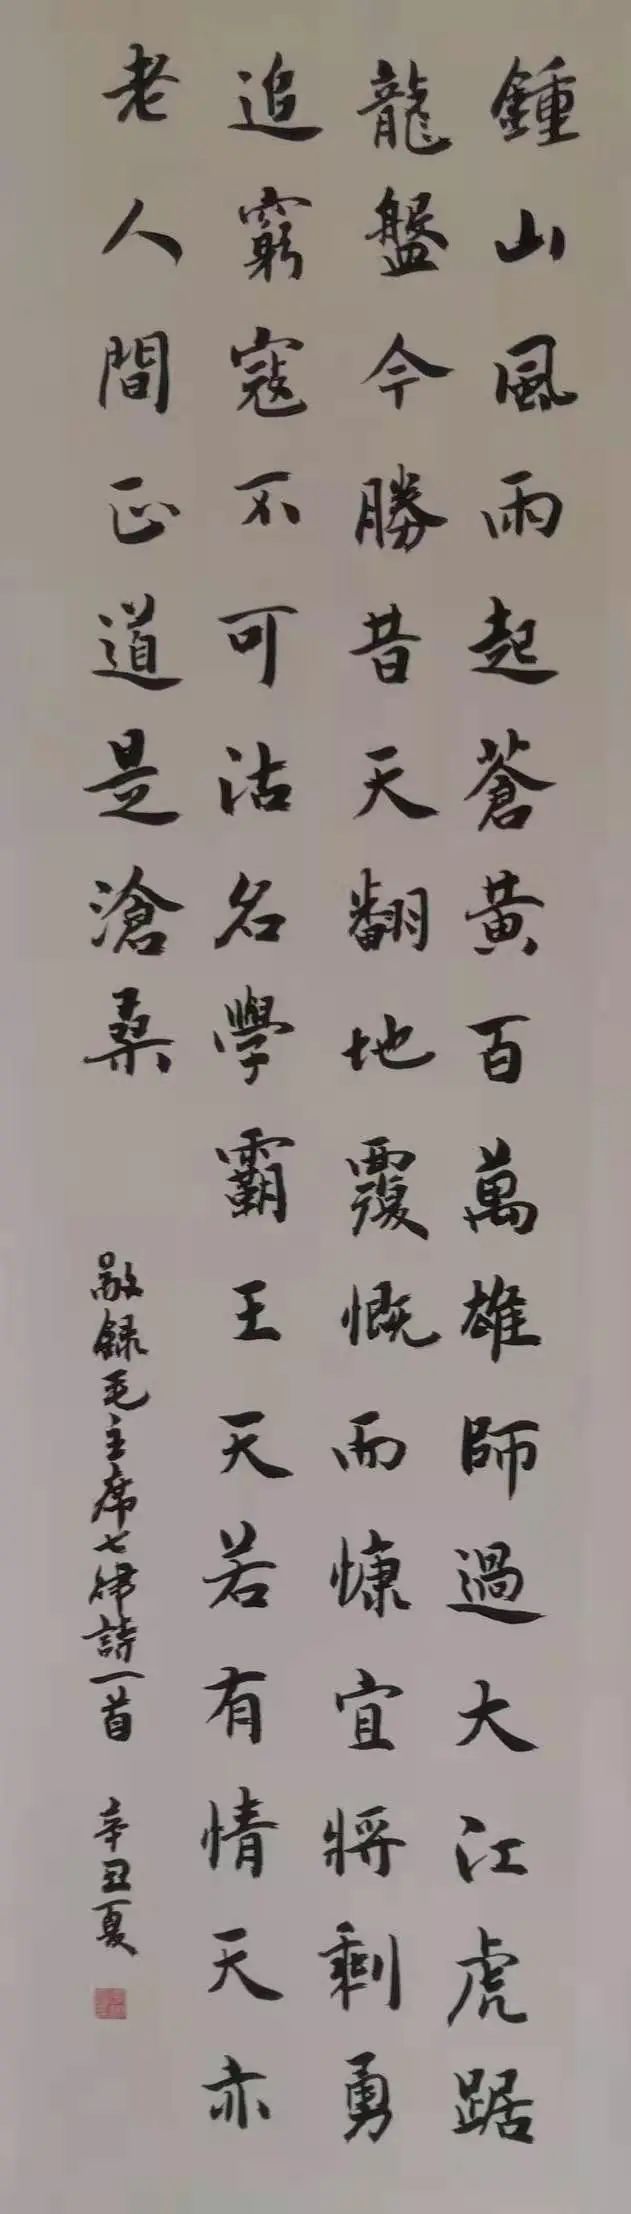 鍾山風雨起蒼黃百萬雄師過大江虎踞
龍盤今勝昔天翻地覆慨而慷宜將剩勇
追窮寇不可沽名學霸王天若有情天亦
老人間正道是滄桑
敬録毛主席七律詩一首 辛丑夏